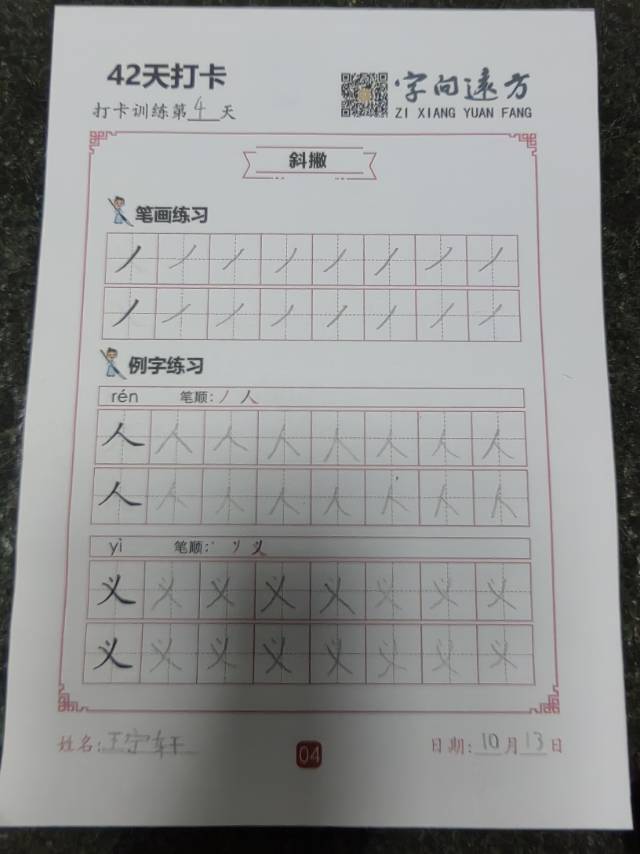 42天打卡
打卡训练第4天
字向遠方
ZI XIANG YUAN FANG
斜撇
笔画练习
丿丿丿丿丿丿丿丿
丿丿丿丿丿丿丿丿
例字练习
rén 笔顺: 丿 人
人人人人人人人人
人人人人人人人人
yì 笔顺: 丶 丷 义
义义义义义义义义
义义义义义义义义
姓名: 王宁轩
04
日期: 10月13日